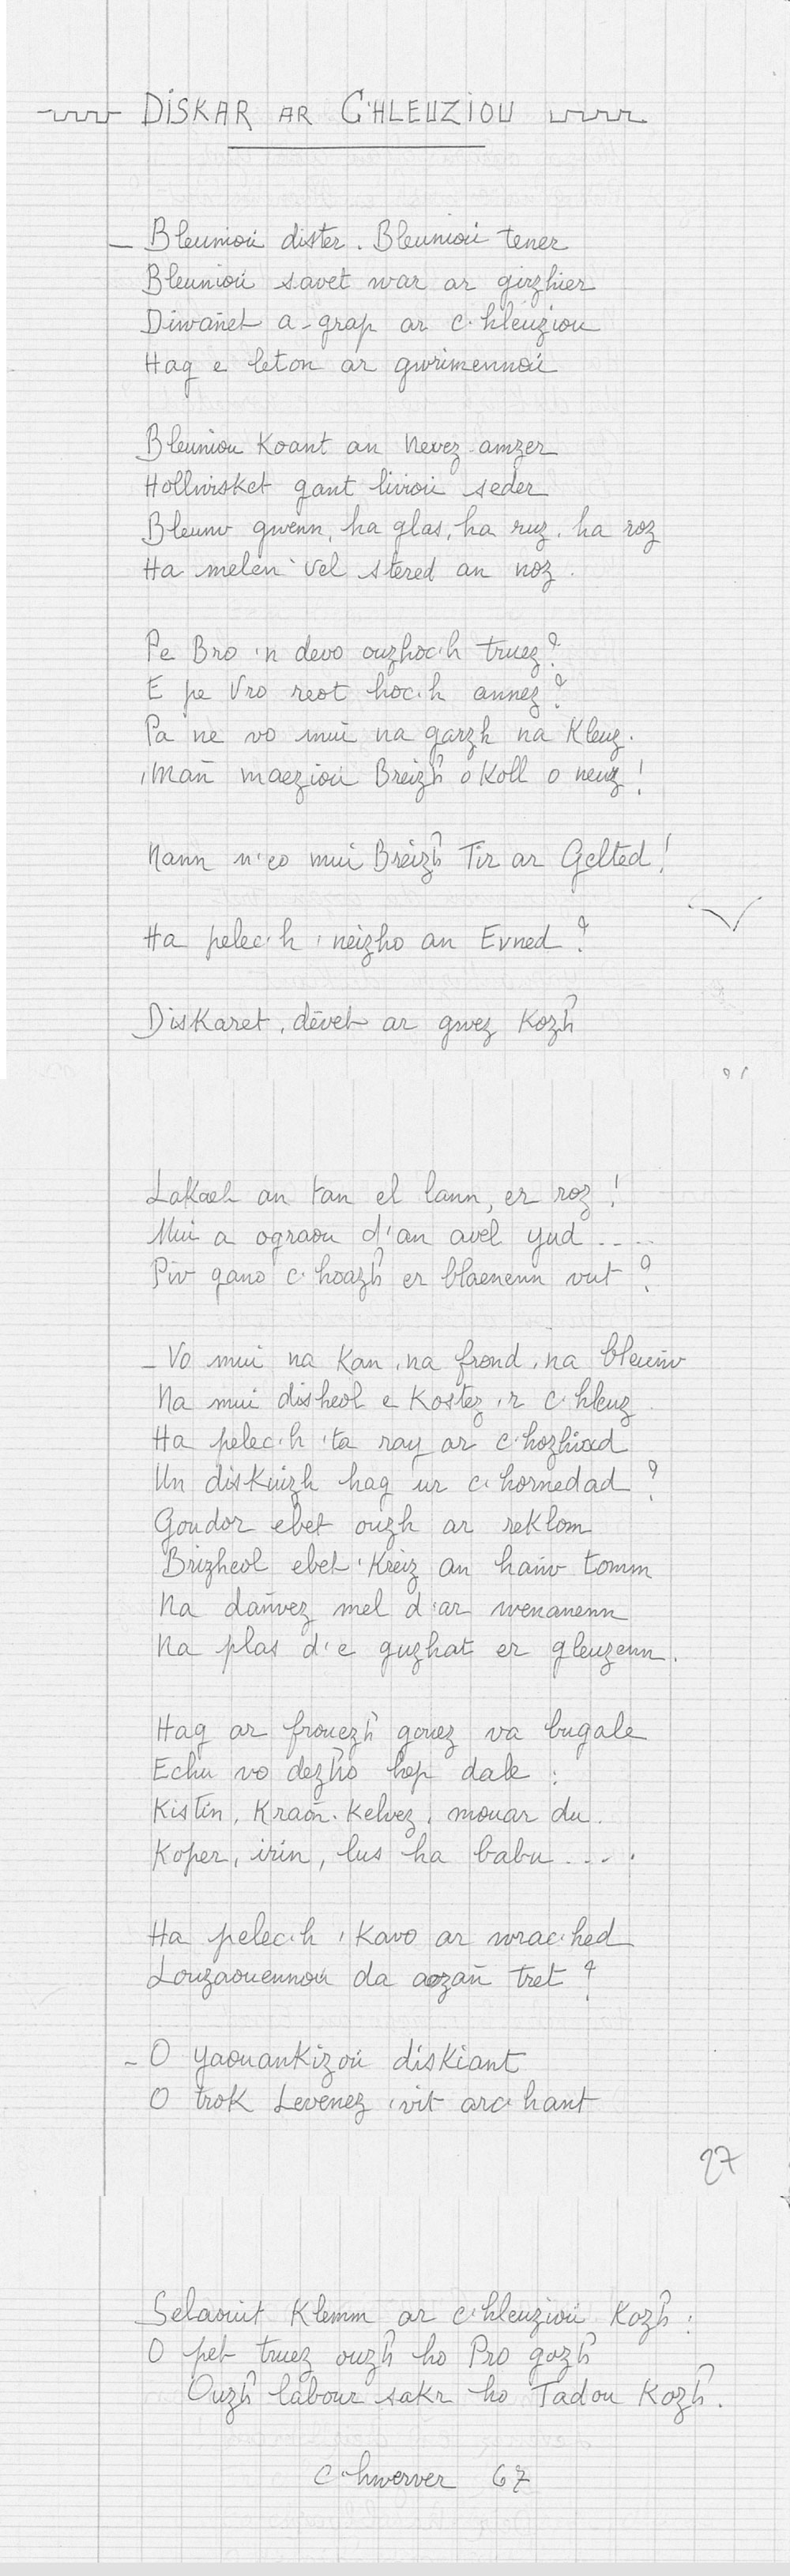 DISKAR AR C'HLEUZIOU
_ Bleuniou dister. Bleuniou tener
Bleuniou savet war ar girzhier
Diwanet a-grap ar c'hleuziou
Hag e leton ar gwrimennoù
Bleuniou Koant an Nevez amzer
Hollwisket gant livioù seder
Bleunv gwenn, ha glas, ha ruz, ha roz
Ha melen 'vel stered an noz.
Pe Bro 'n devo ouzhoc'h truez?
E pe Vro reot hoc'h annez?
Pa ne vo mui na garzh na Kleuz.
'Mañ maeziou Breizh o Koll o neuz!
Nann n'eo mui Breizh Tir ar Gelted!
Ha pelec'h 'neizho an Evned?
Diskaret, devet ar gwez Kozh
Lakaet an tan el lann, er roz!
Mui a ograou d'an avel yud ....
Piv gano c'hoazh er blaenenn vut?
_ Vo mui na Kan, na frond, na bleunv
Na mui disheol e Kostez 'r c'hleuz
Ha pelec'h 'ta ray ar c'hozhiad
Un diskuizh hag ur c'hornedad?
Goudor ebet ouzh ar reklom
Brizheol ebet 'Kreiz an hañv tomm
Na dañvez mel d'ar wenanenn
Na plas d'e guzhat er gleuzenn.
Hag ar frouezh gouez va bugale
Echu vo dezho hep dale :
Kistin, Kraoñ-Kelvez, mouar du.
Koper, irin, lus ha babu ....
Ha pelec'h 'Kavo ar wrac'hed
Louzaouennou da aozañ tret?
_ O yaouankizoù diskiant
O trok Levenez 'vit arc'hant
27
Selaouit Klemm ar c'hleuzioù Kozh :
O pet truez ouzh ho Pro gozh
Ouzh labour sakr ho Tadou Kozh.
C'hwerver 67